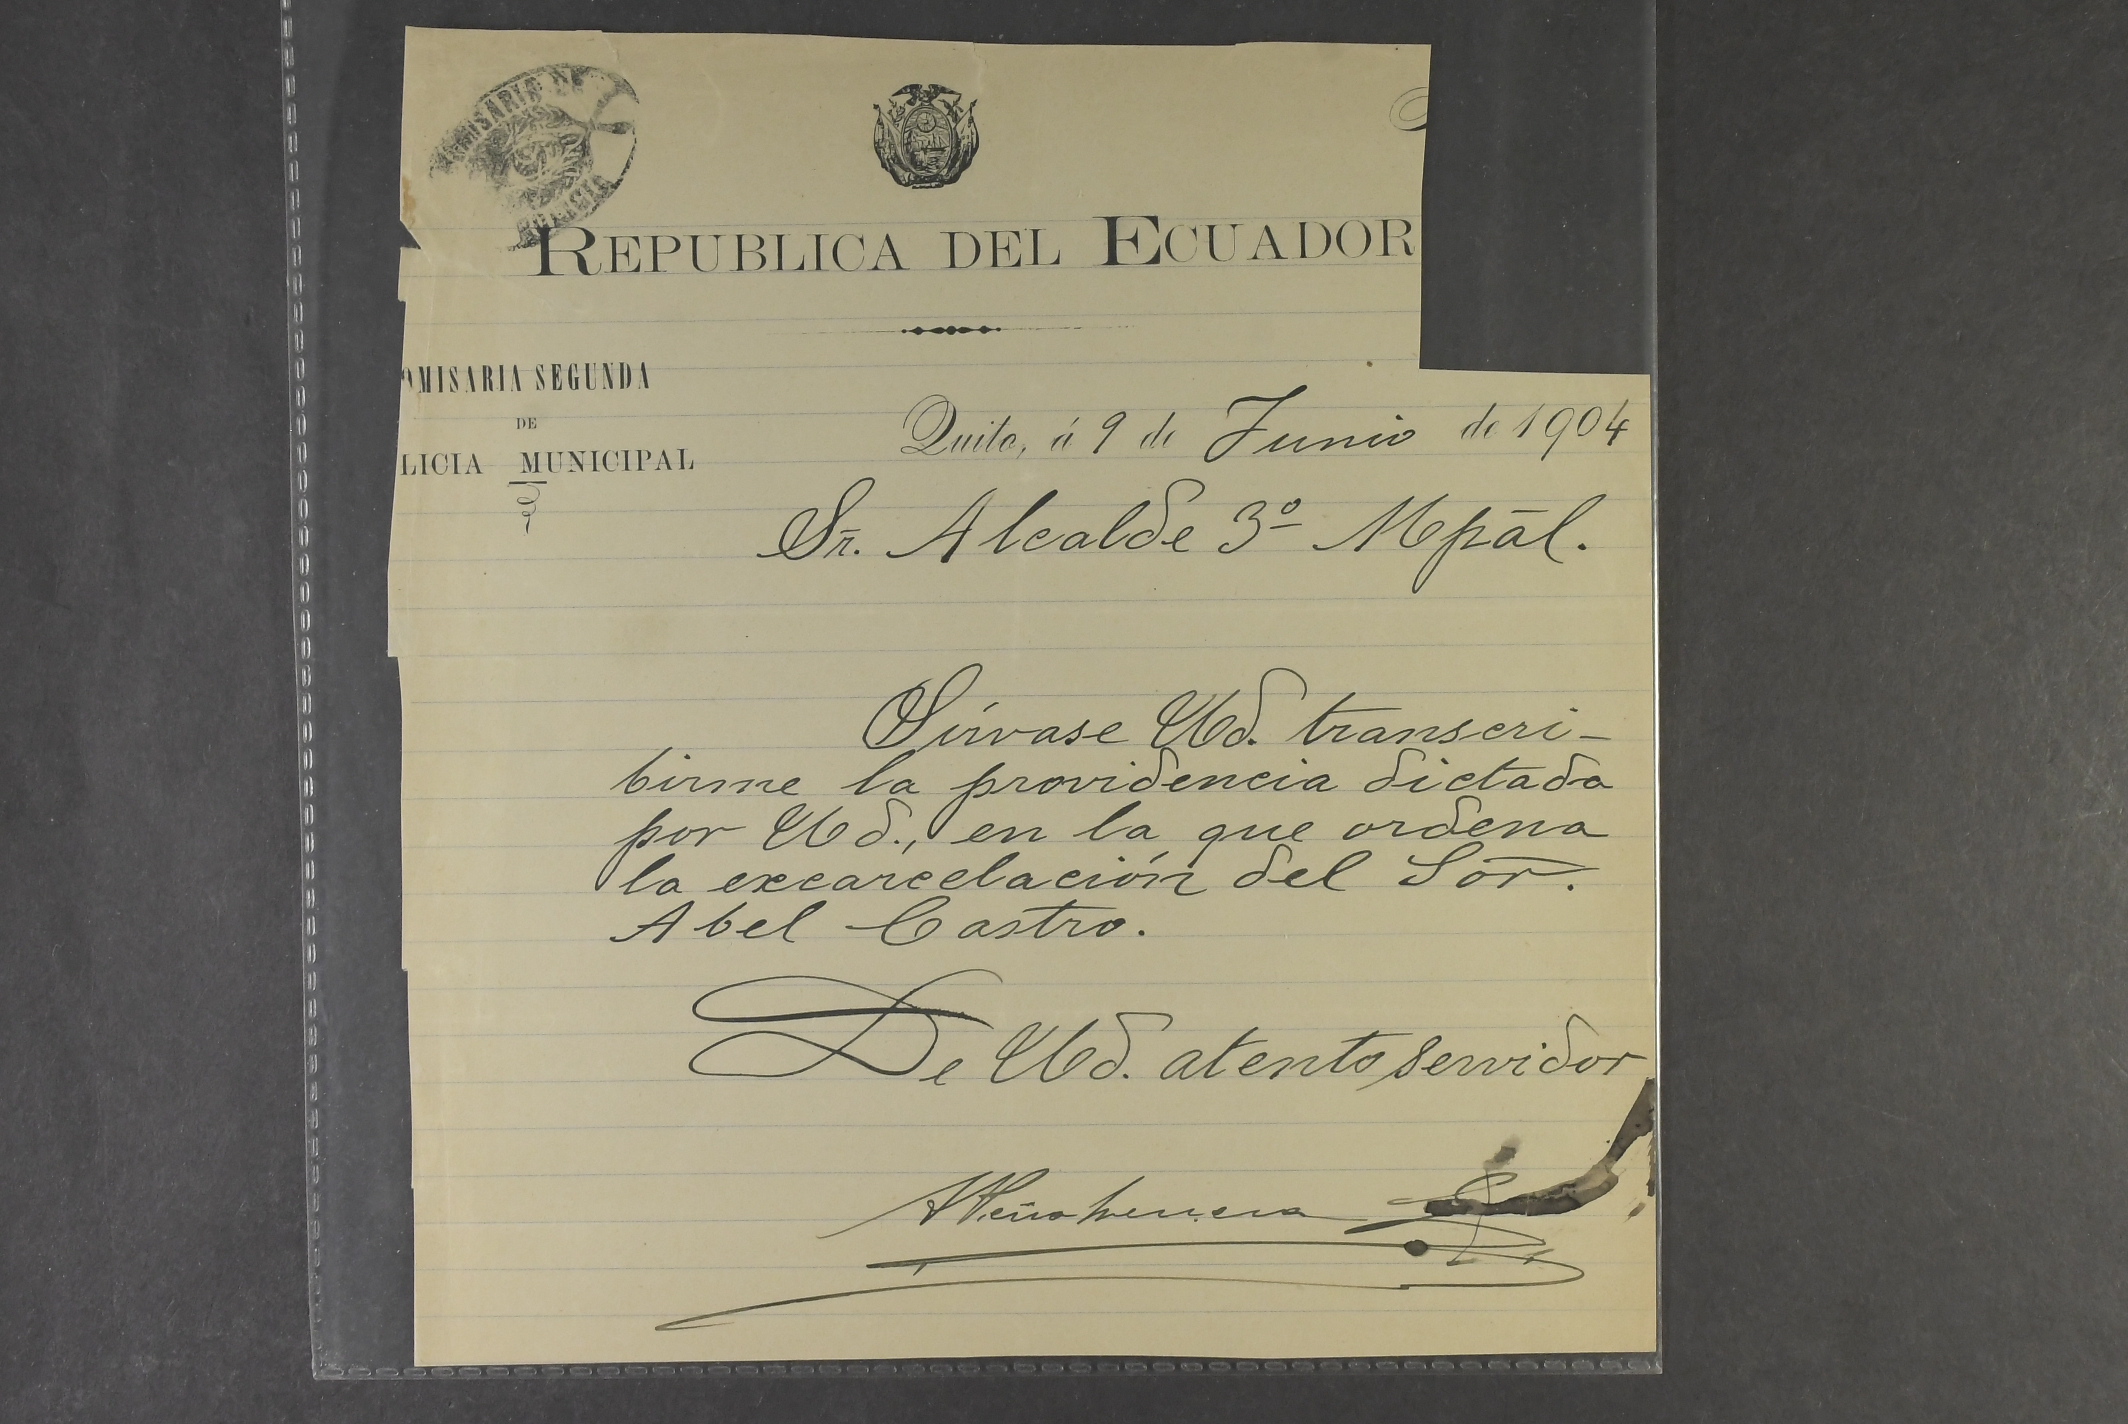 REPUBLICA DEL ECUADOR
OMISARIA SEGUNDA
DE
LICIA MUNICIPAL
Quito, á 9 de Junio de 1904
Sr. Alcalde 3º Mpāl.
Sírvase Ud. transcri-
birme la providencia dictada
por Ud., en la que ordena
la excarcelación del Sor.
Abel Castro.
De Ud. atento servidor